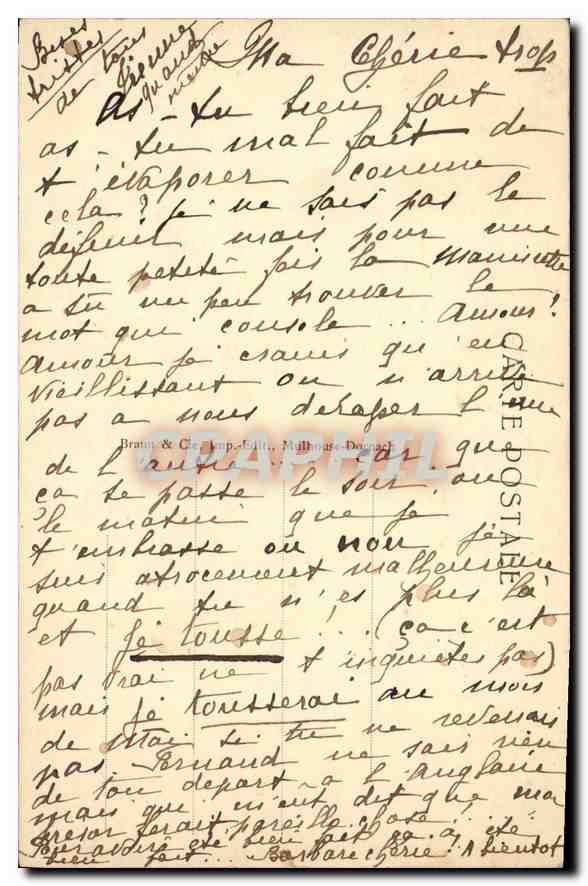 Bises
tristes
de tous
Sienne
quand
même
Ma Chérie trop
As-tu bien fait
as-tu mal fait de
t'évaporer comme
cela? je ne sais pas le
définir mais pour une
toute petite fois la
a su un peu trouver le
mot qui console... Amour!
Amour je crains qu'en
vieillissant on n'arrive
pas a nous déraper l'une
de l'autre car que
ça se passe le soir ou
le matin que je
t'embrasse ou non je
suis atrocement malheureuse
quand tu n'es plus là
et je tousse!.. (ça c'est
pas vrai ne t'inquiètes pas)
mais je tousserai au mois
de Mai si tu ne revenais
pas. Fernand ne sais rien
de ton départ à l'anglaise
mais qui m'eût dit que ma
trésor ferait pareille chose!...
Pour avoir été bien fait ça a été
bien fait... Barbare chérie! A bientot
CARTE POSTALE
Braun & Cie, Imp.-Edit., Mulhouse-Dornach
CPAPHIL